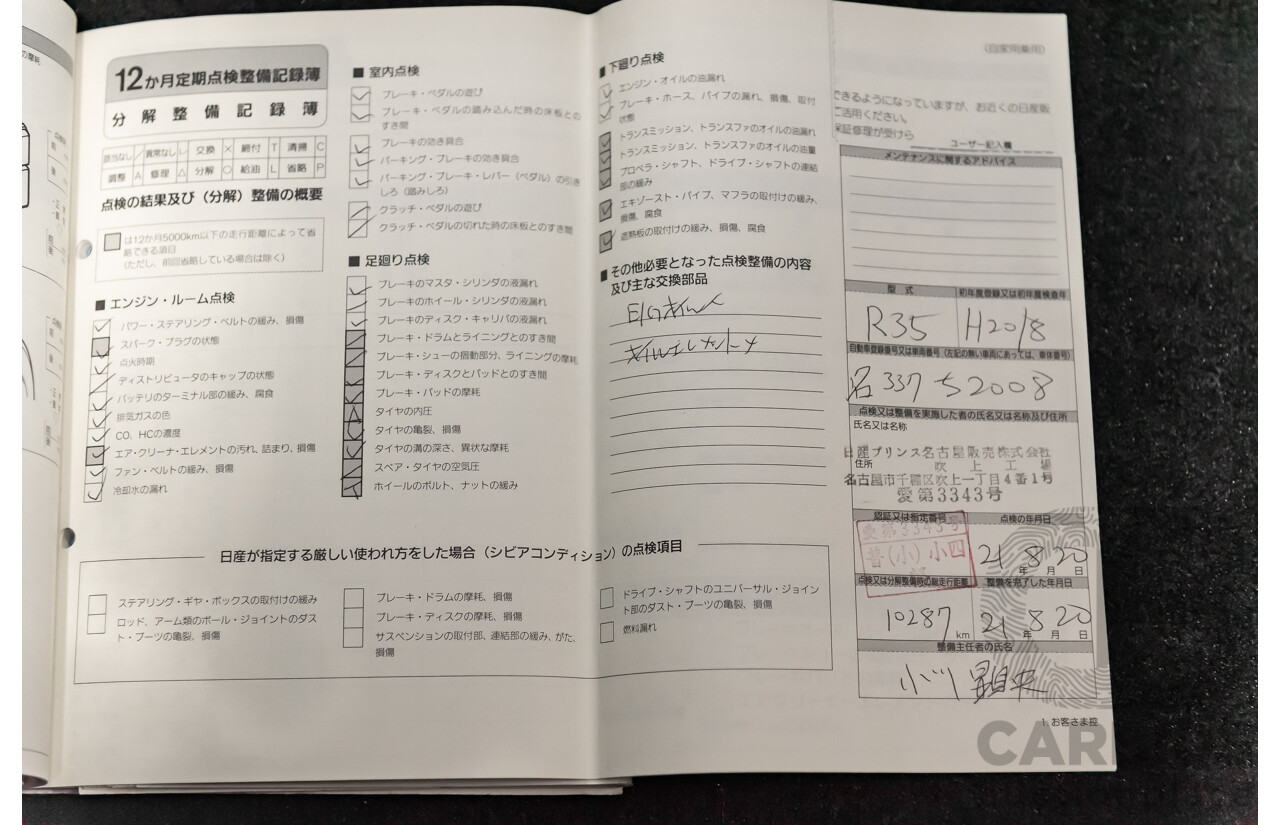 の摩耗、
12か月定期点検整備記録簿
分解整備記録簿
該当なし / 異常なし レ 交換 × 締付 T 清掃 C
調整 A 修理 △ 分解 ○ 給油 L 省略 P
点検の結果及び（分解）整備の概要
は12か月5000km以下の走行距離によって省
略できる項目
（ただし、前回省略している場合は除く）
■ エンジン・ルーム点検
パワー・ステアリング・ベルトの緩み、損傷
スパーク・プラグの状態
点火時期
ディストリビュータのキャップの状態
バッテリのターミナル部の緩み、腐食
排気ガスの色
CO、HCの濃度
エア・クリーナ・エレメントの汚れ、詰まり、損傷
ファン・ベルトの緩み、損傷
冷却水の漏れ
■ 室内点検
ブレーキ・ペダルの遊び
ブレーキ・ペダルの踏み込んだ時の床板との
すき間
ブレーキの効き具合
パーキング・ブレーキの効き具合
パーキング・ブレーキ・レバー（ペダル）の引き
しろ（踏みしろ）
クラッチ・ペダルの遊び
クラッチ・ペダルの切れた時の床板とのすき間
■ 足廻り点検
ブレーキのマスタ・シリンダの液漏れ
ブレーキのホイール・シリンダの液漏れ
ブレーキのディスク・キャリパの液漏れ
ブレーキ・ドラムとライニングとのすき間
ブレーキ・シューの摺動部分、ライニングの摩耗
ブレーキ・ディスクとパッドとのすき間
ブレーキ・パッドの摩耗
タイヤの内圧
タイヤの亀裂、損傷
タイヤの溝の深さ、異状な摩耗
スペア・タイヤの空気圧
ホイールのボルト、ナットの緩み
■ 下廻り点検
エンジン・オイルの油漏れ
ブレーキ・ホース、パイプの漏れ、損傷、取付
状態
トランスミッション、トランスファのオイルの油漏れ
トランスミッション、トランスファのオイルの油量
プロペラ・シャフト、ドライブ・シャフトの連結
部の緩み
エキゾースト・パイプ、マフラの取付けの緩み、
損傷、腐食
遮熱板の取付けの緩み、損傷、腐食
■ その他必要となった点検整備の内容
及び主な交換部品
E/Gオイル
オイルエレメント
日産が指定する厳しい使われ方をした場合（シビアコンディション）の点検項目
ステアリング・ギヤ・ボックスの取付けの緩み
ロッド、アーム類のボール・ジョイントのダス
ト・ブーツの亀裂、損傷
ブレーキ・ドラムの摩耗、損傷
ブレーキ・ディスクの摩耗、損傷
サスペンションの取付部、連結部の緩み、がた、
損傷
ドライブ・シャフトのユニバーサル・ジョイン
ト部のダスト・ブーツの亀裂、損傷
燃料漏れ
（自家用乗用）
できるようになっていますが、お近くの日産販
ご活用ください。
保証修理が受けら
ユーザー記入欄
メンテナンスに関するアドバイス
型式 初年度登録又は初年度検査年
R35 H2018
自動車登録番号又は車両番号（左記の無い車両にあっては、車体番号）
名 337 ち 2008
点検又は整備を実施した者の氏名又は名称及び住所
氏名又は名称
日産プリンス名古屋販売株式会社
住所 吹上工場
名古屋市千種区吹上一丁目4番1号
愛第3343号
認証又は指定番号 点検の年月日
愛第3343号
普(小)小四
21年 8月 20日
点検又は分解整備時の総走行距離 整備を完了した年月日
10287 km 21年 8月 20日
整備主任者の氏名
小川
1. お客さま控
CAR